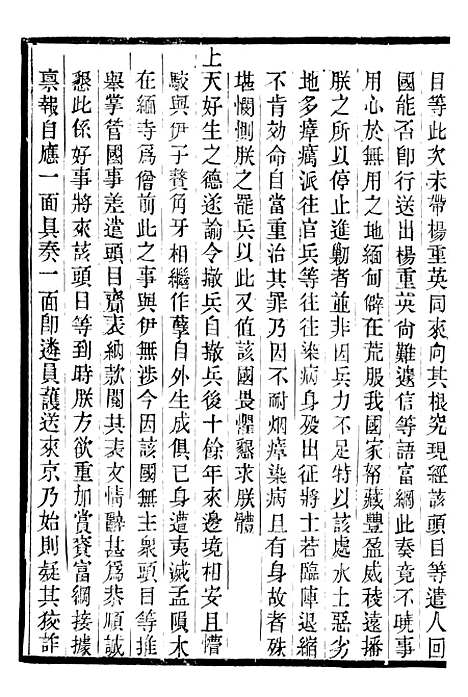 目等此次未帶楊重英同來向其根究現經該頭目等遣人回
國能否卽行送出楊重英尙難遽信等語富綱此奏竟不曉事
用心於無用之地緬甸僻在荒服我國家帑藏豐盈威稜遠播
朕之所以停止進勦者並非因兵力不足特以該處水土惡劣
地多瘴癘派往官兵等往往染病身歿出征將士若臨陣退縮
不肯効命自當重治其罪乃因不耐烟瘴染病且有身故者殊
堪憫惻朕之罷兵以此又值該國畏懼懇求朕體
上天好生之德遂諭令撤兵自撤兵後十餘年來邊境相安且懵
駮與伊子贅角牙相繼作孽自外生成俱已身遭夷滅孟隕本
在緬寺爲僧前此之事與伊無涉今因該國無主衆頭目等推
舉掌管國事差遣頭目齎表納款閱其表文情辭甚爲恭順誠
懇此係好事將來該頭目等到時朕方欲重加賞賚富綱接據
稟報自應一面具奏一面卽遴員護送來京乃始則疑其狡詐